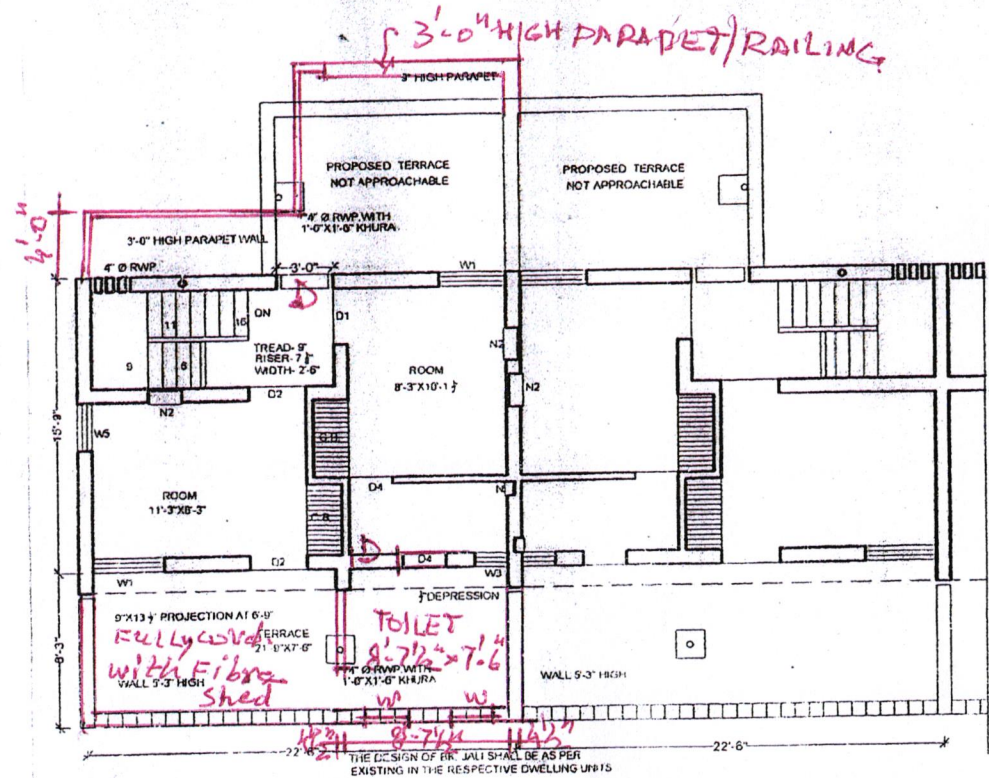 3'-0" HIGH PARAPET/RAILING
3" HIGH PARAPET
PROPOSED TERRACE
NOT APPROACHABLE
PROPOSED TERRACE
NOT APPROACHABLE
4'-0"
4" Ø RWP. WITH
1'-0"X1'-6" KHURA
3'-0" HIGH PARAPET WALL
4" Ø RWP
3'-0"
W1
D
ON
11
16
D1
9
6
TREAD- 9"
RISER- 7
WIDTH- 2'-6"
N2
ROOM
8'-3"X10'-1 ½
N2
D2
N2
15'-9"
W5
C.B.
ROOM
11'-3"X8'-3"
D4
N
C.B.
D
D4
W1
D2
W3
DEPRESSION
9"X13 ½" PROJECTION AT 6'-9"
TOILET
8'-7½" x 7'-6"
Fully
with Fibre
Shed
TERRACE
21'-9"X7'-6"
WALL 5'-3" HIGH
4" Ø RWP. WITH
1'-0"X1'-6" KHURA
WALL 5'-3" HIGH
8'-3"
W
W
4½"
8'-7½"
4½"
22'-6"
22'-6"
THE DESIGN OF BR. JALI SHALL BE AS PER
EXISTING IN THE RESPECTIVE DWELLING UNITS